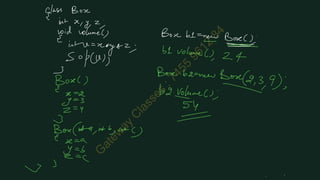 class Box
{ int x, y, z;
void volume()
{ int v = x*y*z;
S.o.p(v);
}
Box()
{ x=2
y=3
z=4
}
Box(int a, int b, int c)
{ x=a
y=b
z=c
}
}
Box b1=new Box();
b1 volume(); 24
Box b2=new Box(2,3,9);
b2 volume();
54
Gateway Classes : 7455 9612 84